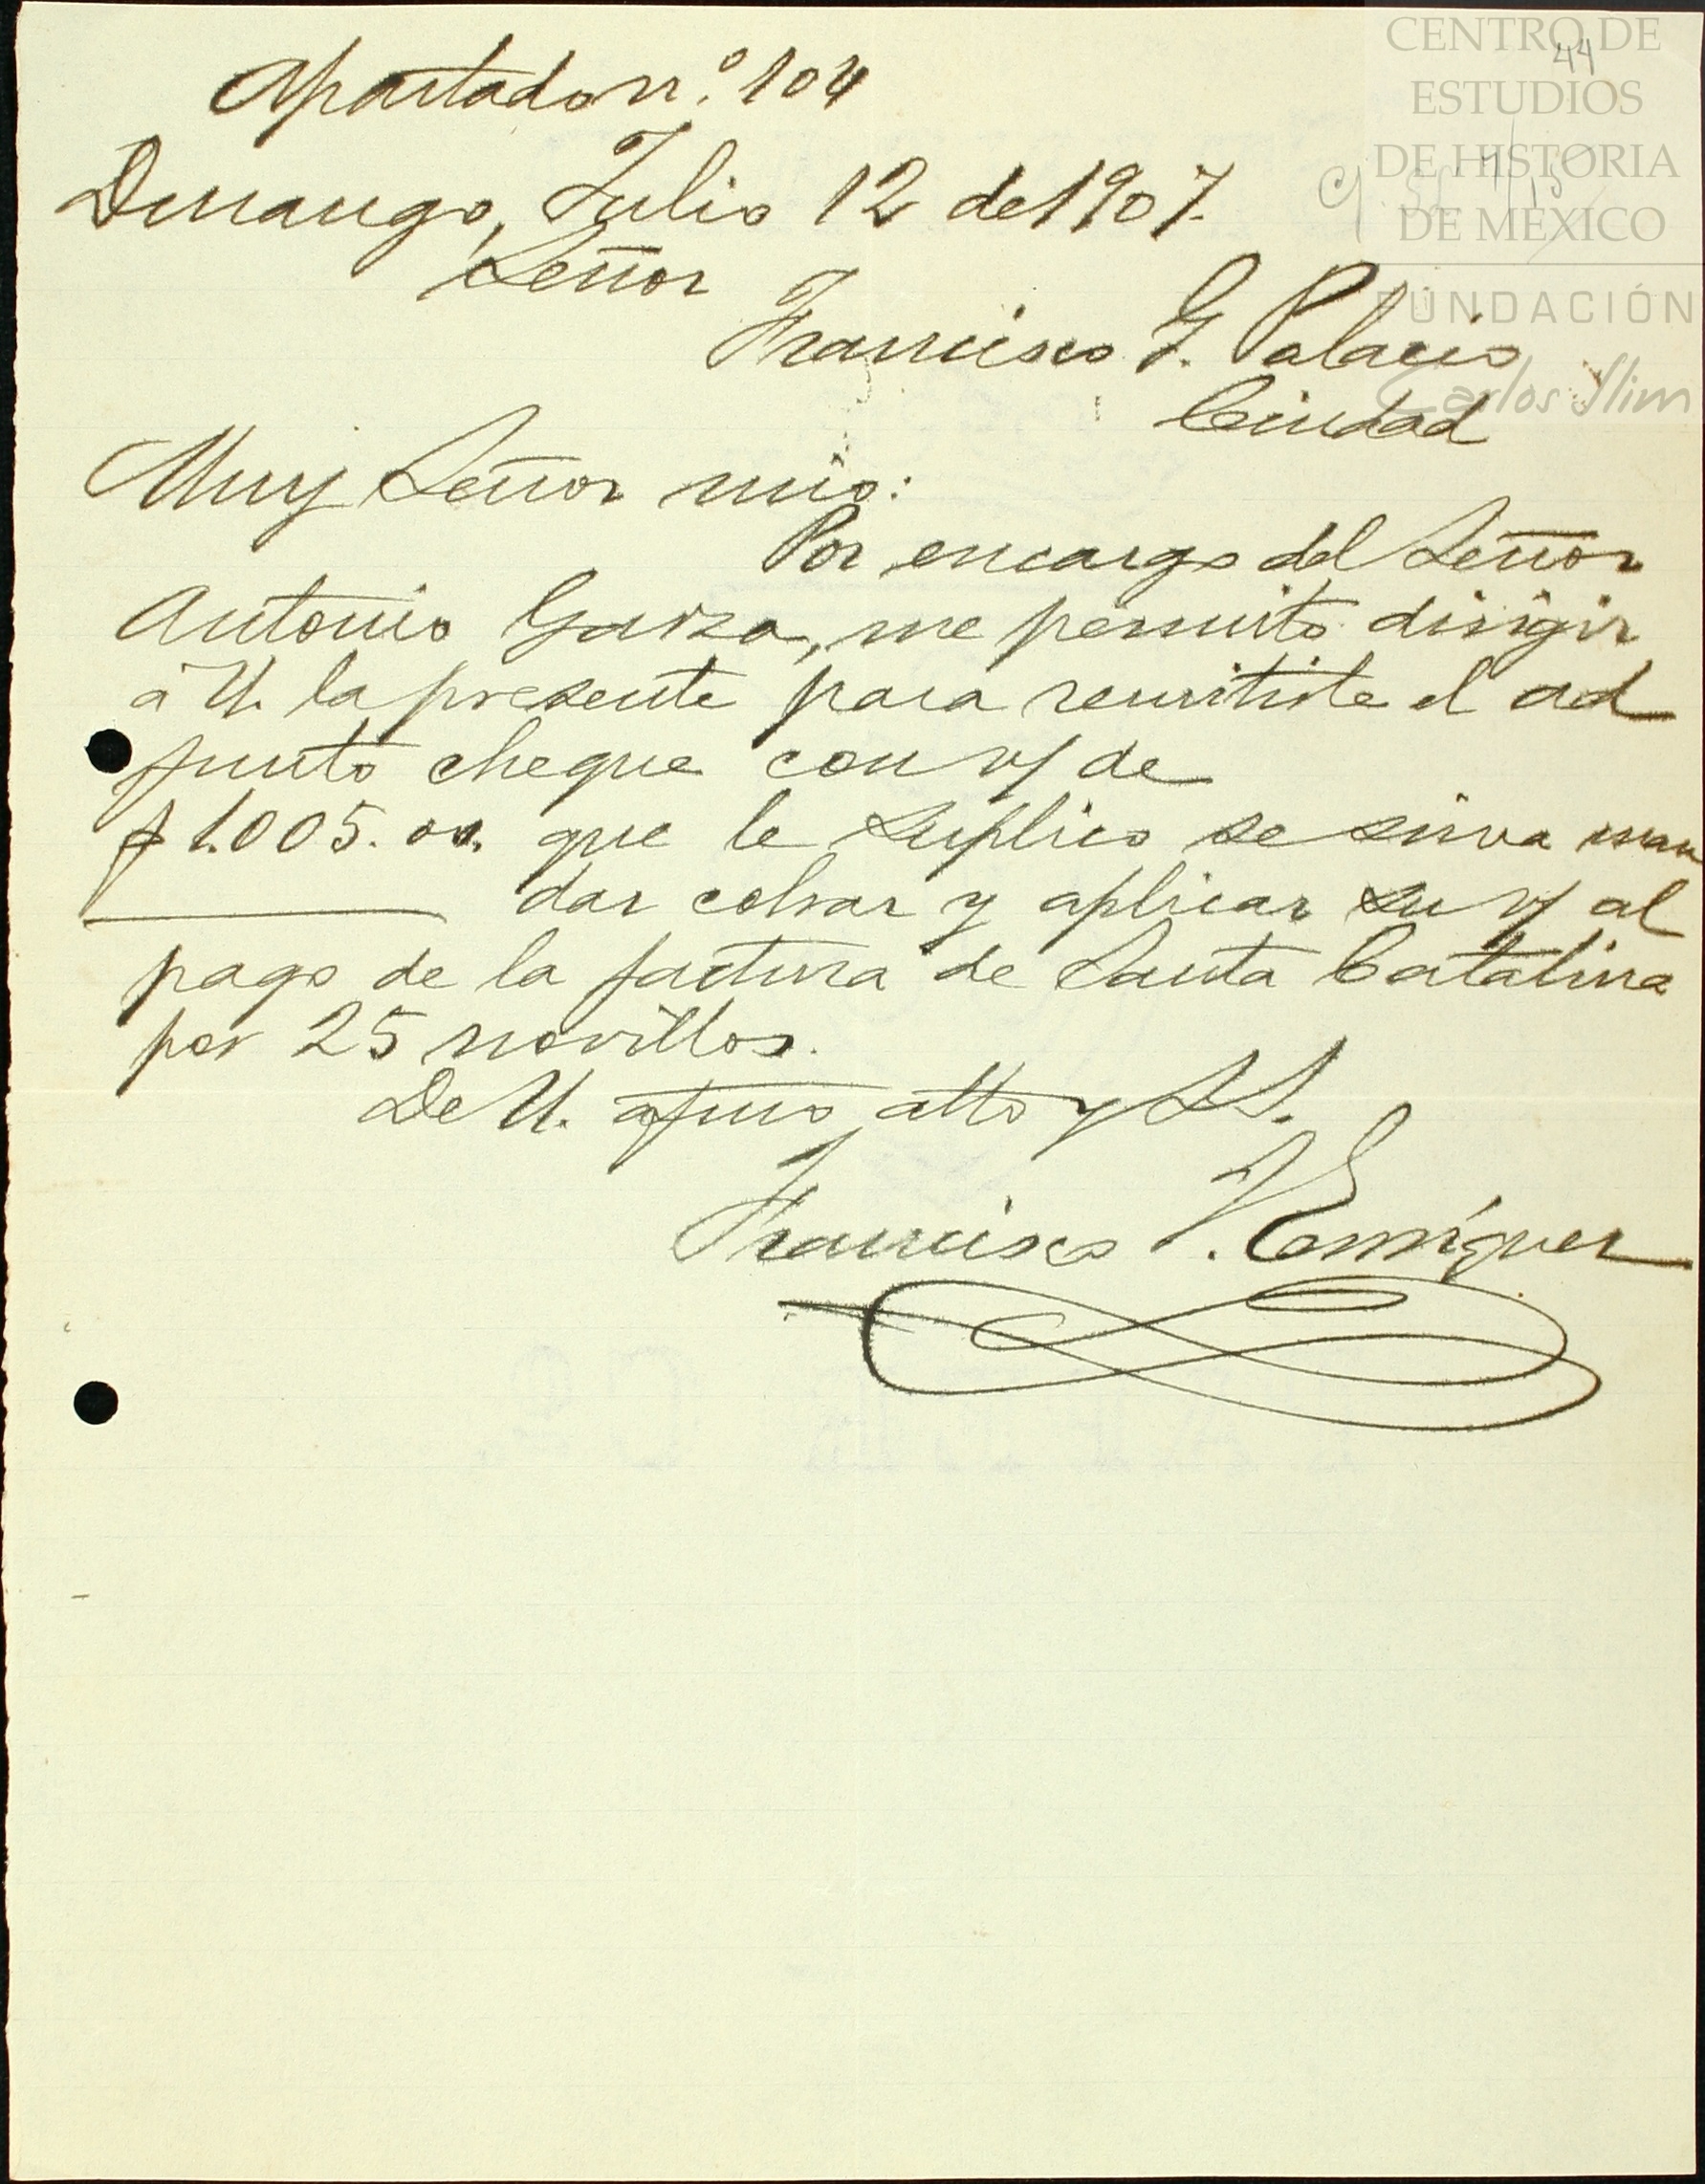 44
CENTRO DE
ESTUDIOS
DE HISTORIA
DE MÉXICO
FUNDACIÓN
Carlos Slim
Apartado n.º 104
Durango, Julio 12 de 1907.
Señor
Francisco G. Palacio
Ciudad
Muy Señor mio:
Por encargo del Señor
Antonio Garza, me permito dirigir
á U. la presente para remitirle el ad
junto cheque con v/ de
$1.005.00. que le suplico se sirva man
dar cobrar y aplicar su v/ al
pago de la factura de Santa Catalina
por 25 novillos.
De U. afmo atto y S.S.
Francisco Enríquez